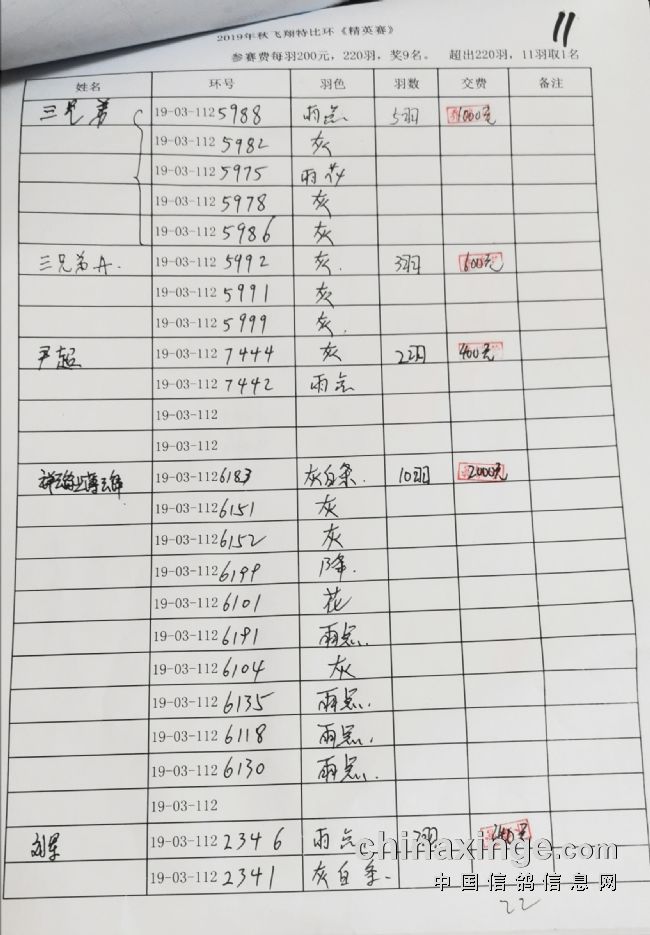 11
2019年秋飞翔特比环《精英赛》
参赛费每羽200元，220羽，奖9名。 超出220羽，11羽取1名
姓名 环号 羽色 羽数 交费 备注
三兄弟 19-03-112 5988 雨点 5羽 1000元
19-03-112 5982 灰
19-03-112 5975 雨花
19-03-112 5978 灰
19-03-112 5986 灰
三兄弟A. 19-03-112 5992 灰. 3羽 600元
19-03-112 5991 灰
19-03-112 5999 灰.
尹超 19-03-112 7444 灰 2羽 400元
19-03-112 7442 雨点
19-03-112
19-03-112
19-03-112 6183 灰白条. 10羽 2000元
19-03-112 6151 灰
19-03-112 6152 灰
19-03-112 6199 降.
19-03-112 6101 花
19-03-112 6191 雨点.
19-03-112 6104 灰
19-03-112 6135 雨点.
19-03-112 6118 雨点.
19-03-112 6130 雨点.
19-03-112
19-03-112 2346 雨点 2羽
19-03-112 2341 灰白条.
chinaxinge.com
中国信鸽信息网
22